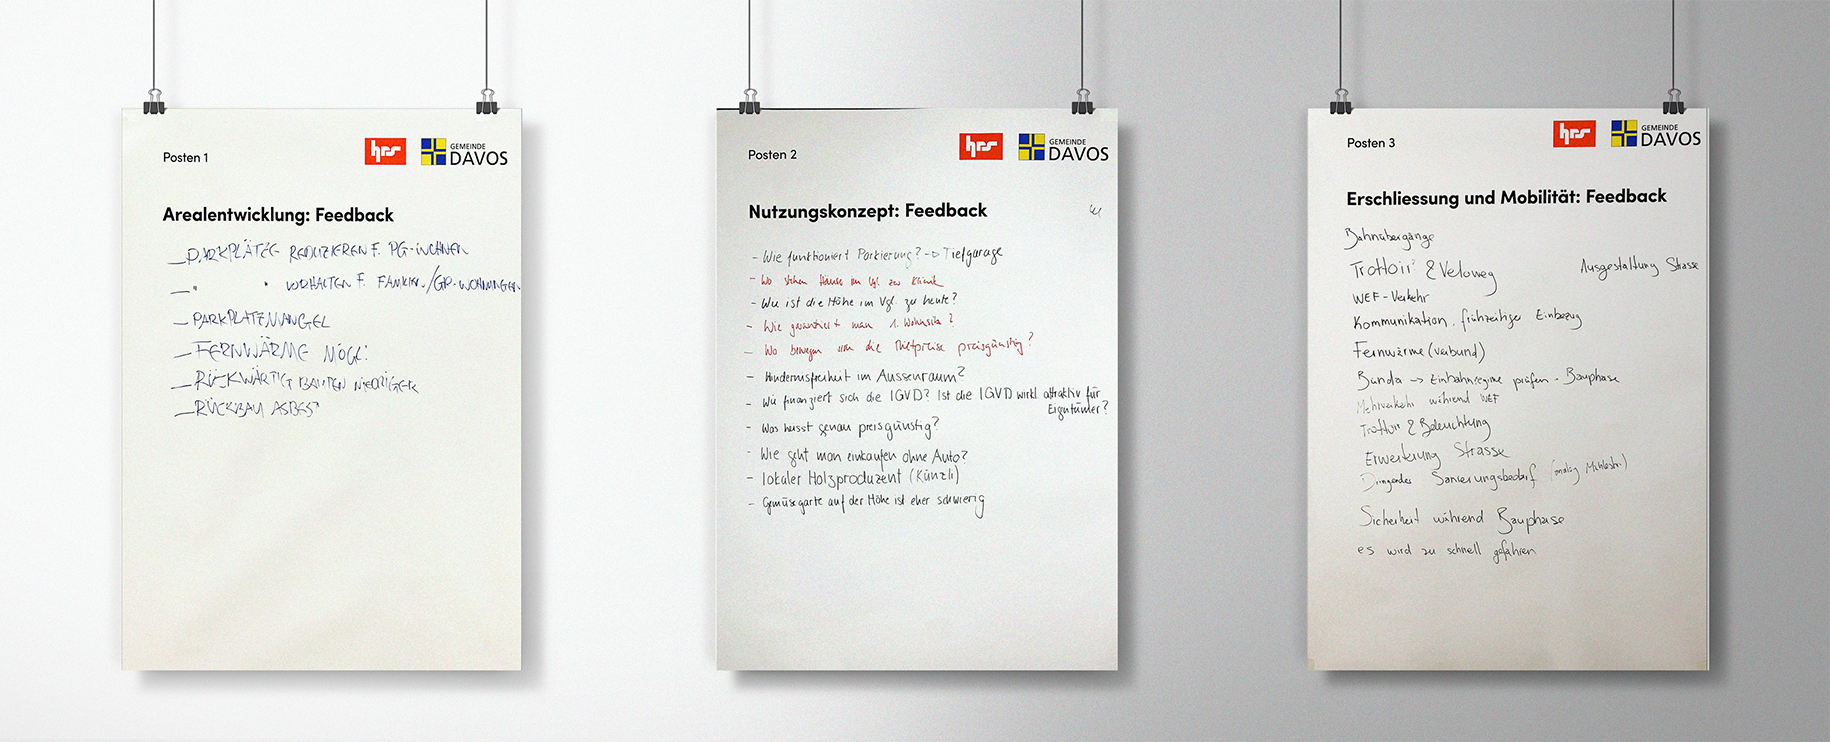 Posten 1
hrs
GEMEINDE
DAVOS
Arealentwicklung: Feedback
– PARKPLÄTZE REDUZIEREN F. PG-WOHNEN
– " " VORHALTEN F. FAMILIEN/GR-WOHNUNGEN
– PARKPLATZMANGEL
– FERNWÄRME MÖGL!
– RÜCKWÄRTIG BAUTEN NIEDRIGER
– RÜCKBAU ASBEST
Posten 2
hrs
GEMEINDE
DAVOS
Nutzungskonzept: Feedback
- Wie funktioniert Parkierung? -> Tiefgarage
- Wo stehen Häuser im Vgl. zur Klinik
- Wie ist die Höhe im Vgl. zu heute?
- Wie garantiert man 1. Wohnsitz?
- Wo bewegen sich die Mietpreise preisgünstig?
- Hindernisfreiheit im Aussenraum?
- Wie finanziert sich die IGVD? Ist die IGVD wirkl. attraktiv für
Eigentümer?
- Was heisst genau preisgünstig?
- Wie geht man einkaufen ohne Auto?
- lokaler Holzproduzent (Künzli)
- Gemüsegarte auf der Höhe ist eher schwierig
Posten 3
hrs
GEMEINDE
DAVOS
Erschliessung und Mobilität: Feedback
Bahnübergänge
Trottoir & Veloweg Ausgestaltung Strasse
WEF-Verkehr
Kommunikation, frühzeitiger Einbezug
Fernwärme (verbund)
Bünda -> Einbahnregime prüfen - Bauphase
Mehrverkehr während WEF
Trottoir & Beleuchtung
Erweiterung Strasse
Dringender Sanierungsbedarf
Sicherheit während Bauphase
es wird zu schnell gefahren